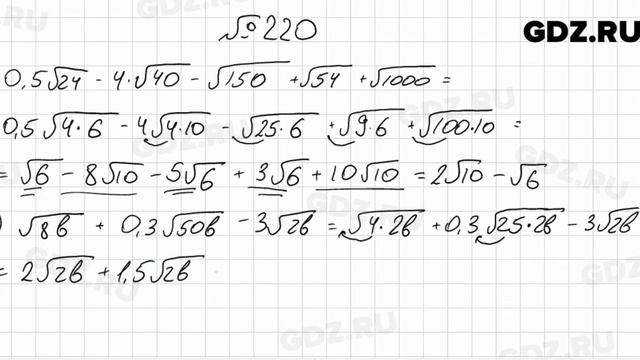 №220
GDZ.RU
0,5√24 - 4·√40 - √150 + √54 + √1000 =
0,5√4·6 - 4√4·10 - √25·6 + √9·6 + √100·10 =
= √6 - 8√10 - 5√6 + 3√6 + 10√10 = 2√10 - √6
) √8b + 0,3√50b - 3√2b = √4·2b + 0,3√25·2b - 3√2b
= 2√2b + 1,5√2b